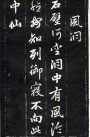 風洞
石壁何空洞中有風泠泠
始知列御寇不向此
中仙